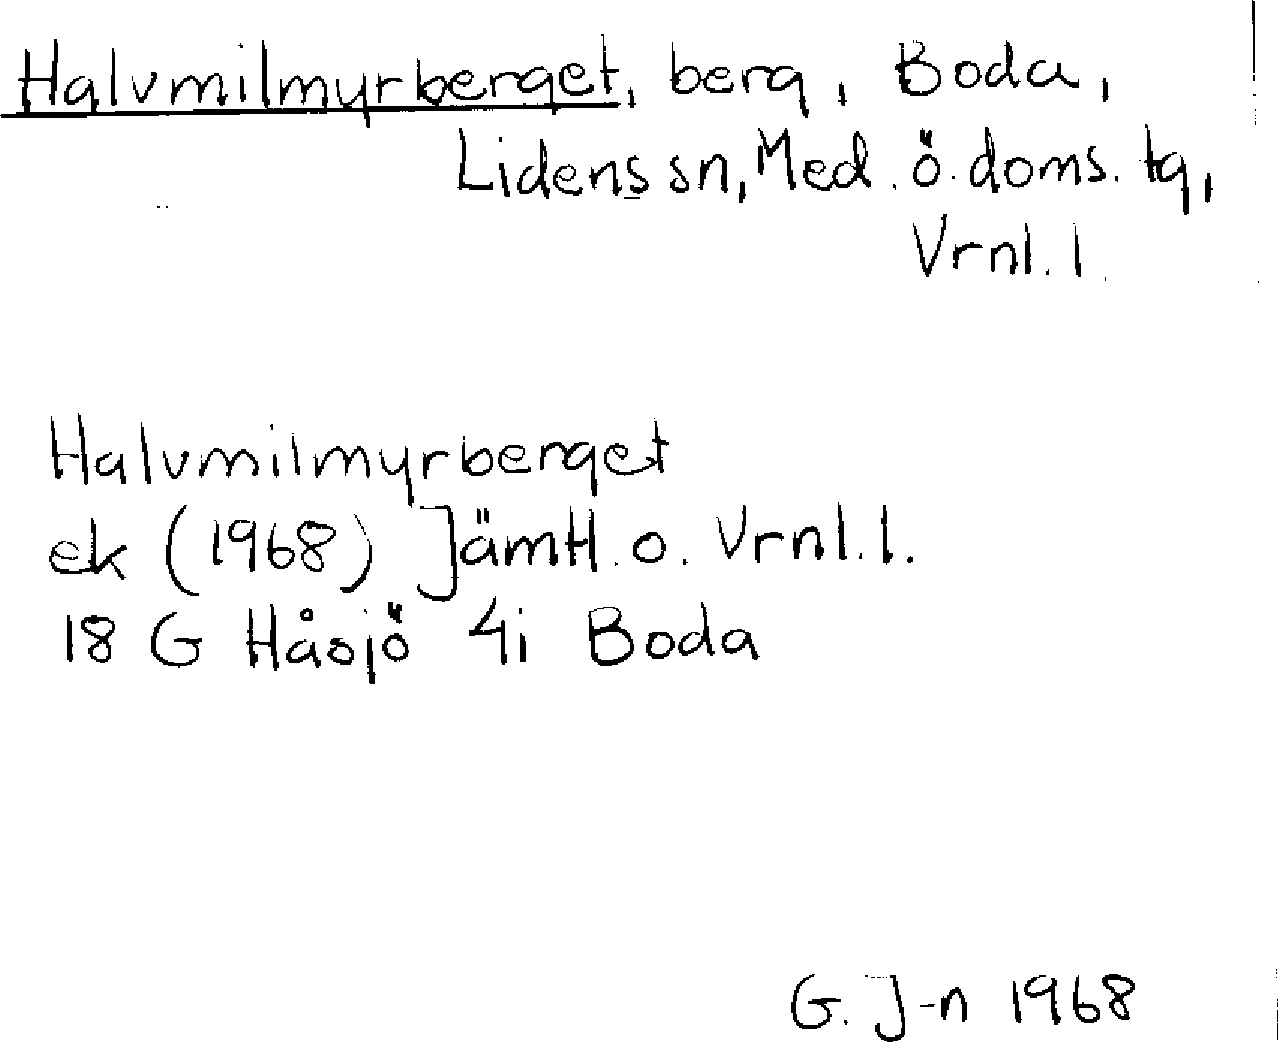 Halvmilmyrberget, berg, Boda,
Lidens sn, Med. ö. doms. tg,
Vrnl. l.
Halvmilmyrberget
ek (1968) Jämtl. o. Vrnl. l.
18 G Håsjö 4i Boda
G. J-n 1968